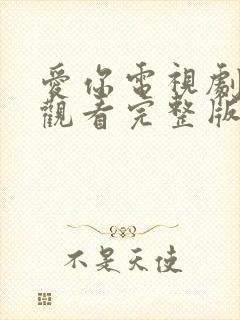 愛你電視劇
觀看完整版
不是天使